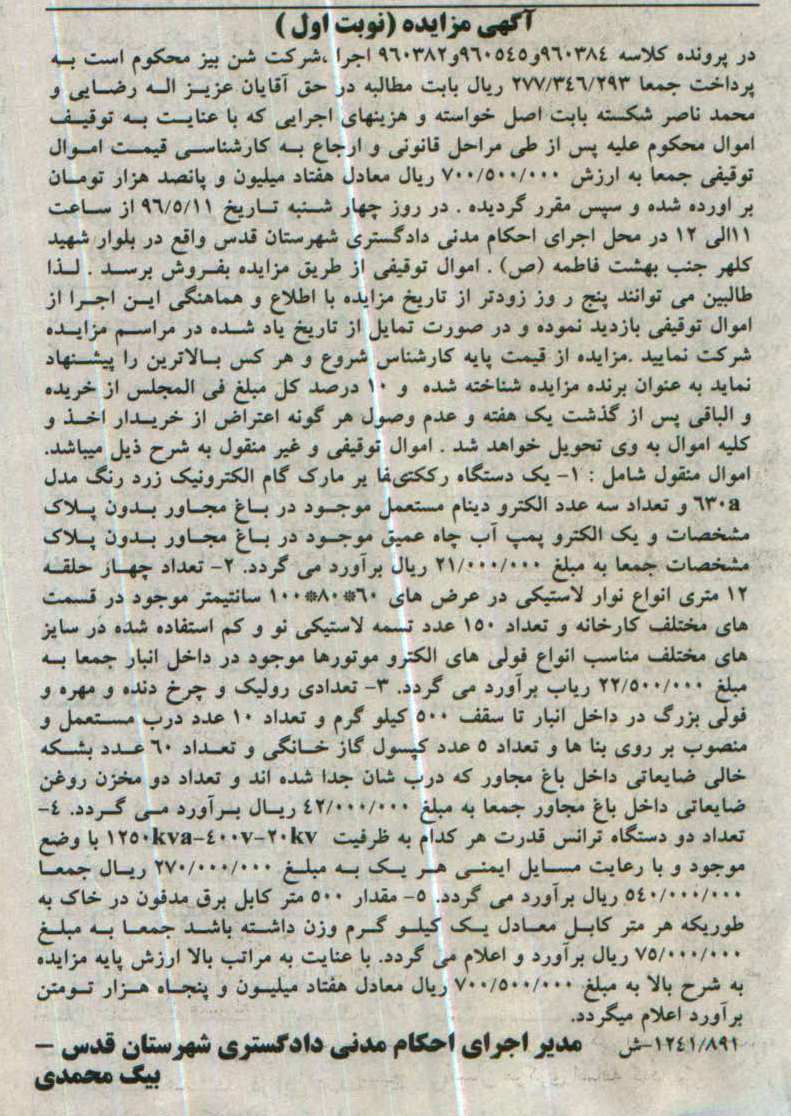 آگهی مزایده (نوبت اول)
در پرونده کلاسه ۹۶۰۳۸٤و۹۶۰۵٤۵و۹۶۰۳۸۲ اجرا ،شرکت شن بیز محکوم است به
پرداخت جمعا ۲۷۷/۳٤۶/۲۹۳ ریال بابت مطالبه در حق آقایان عزیز اله رضایی و
محمد ناصر شکسته بابت اصل خواسته و هزینهای اجرایی که با عنایت به توقیف
اموال محکوم علیه پس از طی مراحل قانونی و ارجاع به کارشناسی قیمت اموال
توقیفی جمعا به ارزش ۷۰۰/۵۰۰/۰۰۰ ریال معادل هفتاد میلیون و پانصد هزار تومان
بر اورده شده و سپس مقرر گردیده . در روز چهار شنبه تاریخ ۹۶/۵/۱۱ از ساعت
۱۱الی ۱۲ در محل اجرای احکام مدنی دادگستری شهرستان قدس واقع در بلوار شهید
کلهر جنب بهشت فاطمه (ص) . اموال توقیفی از طریق مزایده بفروش برسد . لذا
طالبین می توانند پنج ر وز زودتر از تاریخ مزایده با اطلاع و هماهنگی این اجرا از
اموال توقیفی بازدید نموده و در صورت تمایل از تاریخ یاد شده در مراسم مزایده
شرکت نمایید .مزایده از قیمت پایه کارشناس شروع و هر کس بالاترین را پیشنهاد
نماید به عنوان برنده مزایده شناخته شده و ۱۰ درصد کل مبلغ فی المجلس از خریده
و الباقی پس از گذشت یک هفته و عدم وصول هر گونه اعتراض از خریدار اخذ و
کلیه اموال به وی تحویل خواهد شد . اموال توقیفی و غیر منقول به شرح ذیل میباشد.
اموال منقول شامل : ۱- یک دستگاه رکتی‌فا یر مارک گام الکترونیک زرد رنگ مدل
۶۳۰a و تعداد سه عدد الکترو دینام مستعمل موجود در باغ مجاور بدون پلاک
مشخصات و یک الکترو پمپ آب چاه عمیق موجود در باغ مجاور بدون پلاک
مشخصات جمعا به مبلغ ۲۱/۰۰۰/۰۰۰ ریال برآورد می گردد. ۲- تعداد چهار حلقه
۱۲ متری انواع نوار لاستیکی در عرض های ۶۰*۸۰*۱۰۰ سانتیمتر موجود در قسمت
های مختلف کارخانه و تعداد ۱۵۰ عدد تسمه لاستیکی نو و کم استفاده شده در سایز
های مختلف مناسب انواع فولی های الکترو موتورها موجود در داخل انبار جمعا به
مبلغ ۲۲/۵۰۰/۰۰۰ ریاب برآورد می گردد. ۳- تعدادی رولیک و چرخ دنده و مهره و
فولی بزرگ در داخل انبار تا سقف ۵۰۰ کیلو گرم و تعداد ۱۰ عدد درب مستعمل و
منصوب بر روی بنا ها و تعداد ۵ عدد کپسول گاز خانگی و تعداد ۶۰ عدد بشکه
خالی ضایعاتی داخل باغ مجاور که درب شان جدا شده اند و تعداد دو مخزن روغن
ضایعاتی داخل باغ مجاور جمعا به مبلغ ٤۲/۰۰۰/۰۰۰ ریال برآورد می گردد. ٤-
تعداد دو دستگاه ترانس قدرت هر کدام به ظرفیت ۱۲۵۰kva-٤۰۰v-۲۰kv با وضع
موجود و با رعایت مسایل ایمنی هر یک به مبلغ ۲۷۰/۰۰۰/۰۰۰ ریال جمعا
۵٤۰/۰۰۰/۰۰۰ ریال برآورد می گردد. ۵- مقدار ۵۰۰ متر کابل برق مدفون در خاک به
طوریکه هر متر کابل معادل یک کیلو گرم وزن داشته باشد جمعا به مبلغ
۷۵/۰۰۰/۰۰۰ ریال برآورد و اعلام می گردد. با عنایت به مراتب بالا ارزش پایه مزایده
به شرح بالا به مبلغ ۷۰۰/۵۰۰/۰۰۰ ریال معادل هفتاد میلیون و پنجاه هزار تومتن
برآورد اعلام میگردد.
۱۲٤۱/۸۹۱-ش مدیر اجرای احکام مدنی دادگستری شهرستان قدس –
بیگ محمدی